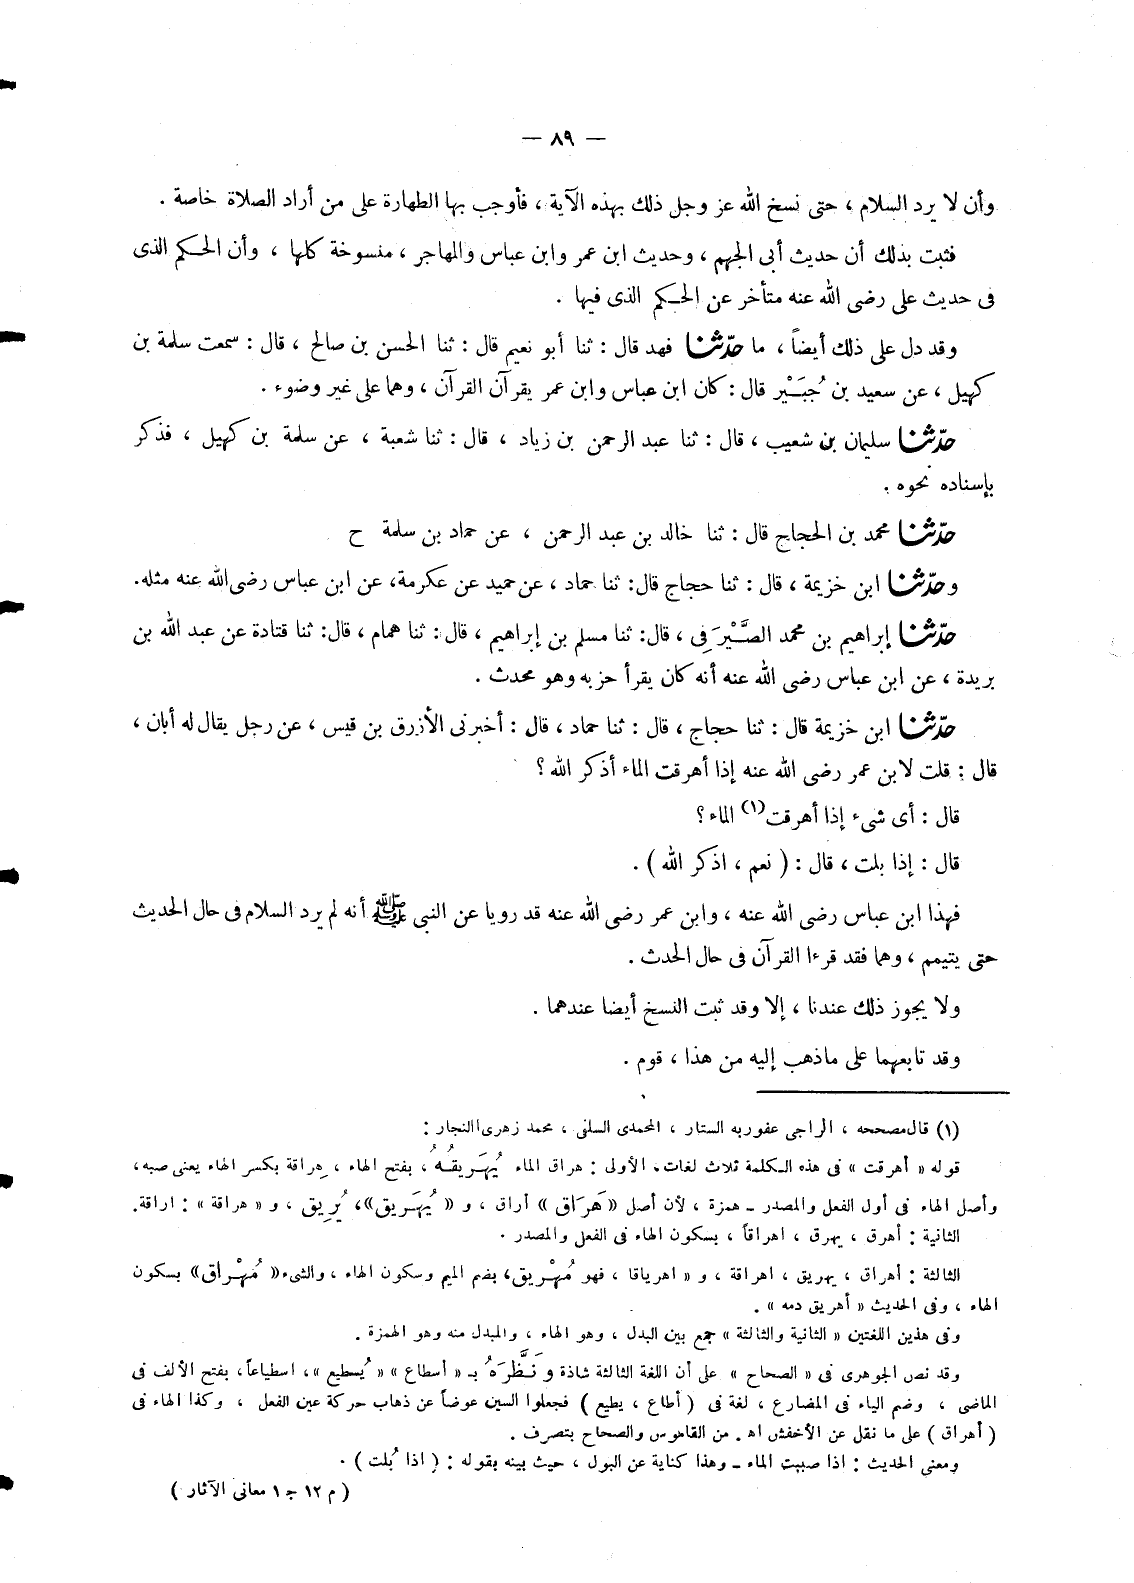 — ٨٩ —
وأن لا يرد السلام ، حتى نسخ الله عز وجل ذلك بهذه الآية ، فأوجب بها الطهارة على من أراد الصلاة خاصة .
فثبت بذلك أن حديث أبى الجهم ، وحديث ابن عمر وابن عباس والمهاجر ، منسوخة كلها ، وأن الحكم الذى
فى حديث على رضى الله عنه متأخر عن الحكم الذى فيها .
وقد دل على ذلك أيضاً ، ما حدّثنا فهد قال : ثنا أبو نعيم قال : ثنا الحسن بن صالح ، قال : سمعت سلمة بن
كهيل ، عن سعيد بن جُبَيْر قال : كان ابن عباس وابن عمر يقرآن القرآن ، وهما على غير وضوء .
حدّثنا سليمان بن شعيب ، قال : ثنا عبد الرحمن بن زياد ، قال : ثنا شعبة ، عن سلمة بن كهيل ، فذكر
بإسناده نحوه .
حدّثنا محمد بن الحجاج قال : ثنا خالد بن عبد الرحمن ، عن حماد بن سلمة ح
وحدّثنا ابن خزيمة ، قال : ثنا حجاج قال: ثنا حماد ، عن حميد عن عكرمة، عن ابن عباس رضى الله عنه مثله.
حدّثنا إبراهيم بن محمد الصَّيْرَفِى ، قال: ثنا مسلم بن إبراهيم ، قال: ثنا همام ، قال: ثنا قتادة عن عبد الله بن
بريدة ، عن ابن عباس رضى الله عنه أنه كان يقرأ حزبه وهو محدث .
حدّثنا ابن خزيمة قال : ثنا حجاج ، قال : ثنا حماد ، قال : أخبرنى الأزرق بن قيس ، عن رجل يقال له أبان ،
قال : قلت لابن عمر رضى الله عنه إذا أهرقت الماء أذكر الله ؟
قال : أى شىء إذا أهرقت(١) الماء ؟
قال : إذا بلت ، قال : ( نعم ، اذكر الله ) .
فهذا ابن عباس رضى الله عنه ، وابن عمر رضى الله عنه قد رويا عن النبى ﷺ أنه لم يرد السلام فى حال الحديث
حتى يتيمم ، وهما فقد قرءا القرآن فى حال الحدث .
ولا يجوز ذلك عندنا ، إلا وقد ثبت النسخ أيضا عندهما .
وقد تابعهما على ماذهب إليه من هذا ، قوم .
(١) قال مصححه ، الراجى عفوربه الستار ، المحمدى السلفى ، محمد زهرى النجار :
قوله « أهرقت » فى هذه الكلمة ثلاث لغات، الأولى : هراق الماء يُهَرِيقُهُ ، بفتح الهاء ، هِراقة بكسر الهاء يعنى صبه،
وأصل الهاء فى أول الفعل والمصدر ـ همزة ، لأن أصل « هَرَاق » أراق ، و « يُهَرِيق »، يُرِيق ، و « هراقة » : اراقة.
الثانية : أهرق ، يهرق ، اهراقاً ، بسكون الهاء فى الفعل والمصدر .
الثالثة : أهراق ، يهريق ، اهراقة ، و « اهرياقا ، فهو مُهْرِيق، بضم الميم وسكون الهاء ، والشىء « مُهْرَاق» بسكون
الهاء ، وفى الحديث « أهريق دمه » .
وفى هذين اللغتين « الثانية والثالثة » جمع بين البدل ، وهو الهاء ، والمبدل منه وهو الهمزة .
وقد نص الجوهرى فى « الصحاح » على أن اللغة الثالثة شاذة ونَظَّرَهُ بـ « أسطاع » « يُسطيع » ، اسطياعاً، بفتح الألف فى
الماضى ، وضم الياء فى المضارع ، لغة فى ( أطاع ، يطيع ) فجعلوا السين عوضاً عن ذهاب حركة عين الفعل ، وكذا الهاء فى
( أهراق ) على ما نقل عن الأخفش اهـ . من القاموس والصحاح بتصرف .
ومعنى الحديث : اذا صببت الماء ـ وهذا كناية عن البول ، حيث بينه بقوله : ( اذا بُلت ) .
( م ١٢ ج ١ معانى الآثار )